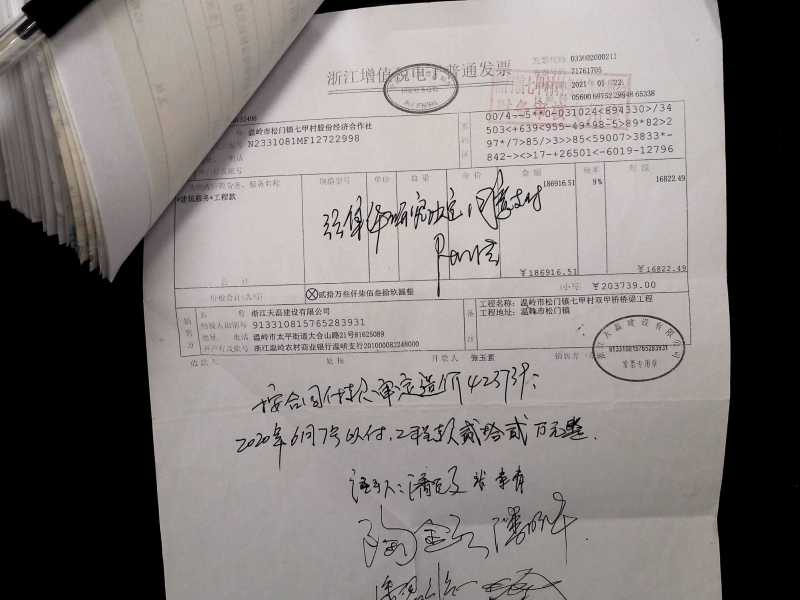 浙江增值税电子普通发票
发票代码 033002000211
71761705
2021 01 22
05600 69752 29648 65338
温岭市松门镇七甲村股份经济合作社
N2331081MF12722998
00/4--5**0-031024<894330>/34
503<+639<955-49*98-5>89*82>2
97*/7>85/>3>>85<59007>3833*-
842-><>17-+26501<-6019-12796
规格型号 单价 数量 单价 金额 税率 税额
*建筑服务*工程款 186916.51 9% 16822.49
研究决定同意支付
合计 ￥186916.51 ￥16822.49
价税合计(大写) ⓧ贰拾万叁仟柒佰叁拾玖圆整 (小写) ￥203739.00
名称 浙江天磊建设有限公司
纳税人识别号 913310815765283931
地址 电话 温岭市太平街道大合山路21号81625089
开户行及账号 浙江温岭农村商业银行温峤支行201000082248000
工程名称：温岭市松门镇七甲村双甲桥桥梁工程
工程地址：温岭市松门镇
收款人 复核 开票人 张玉素 销售方
浙江天磊建设有限公司
913310815765283931
发票专用章
按合同付款审定造价423739：
2020年6月7号以付，工程款贰拾贰万元整．